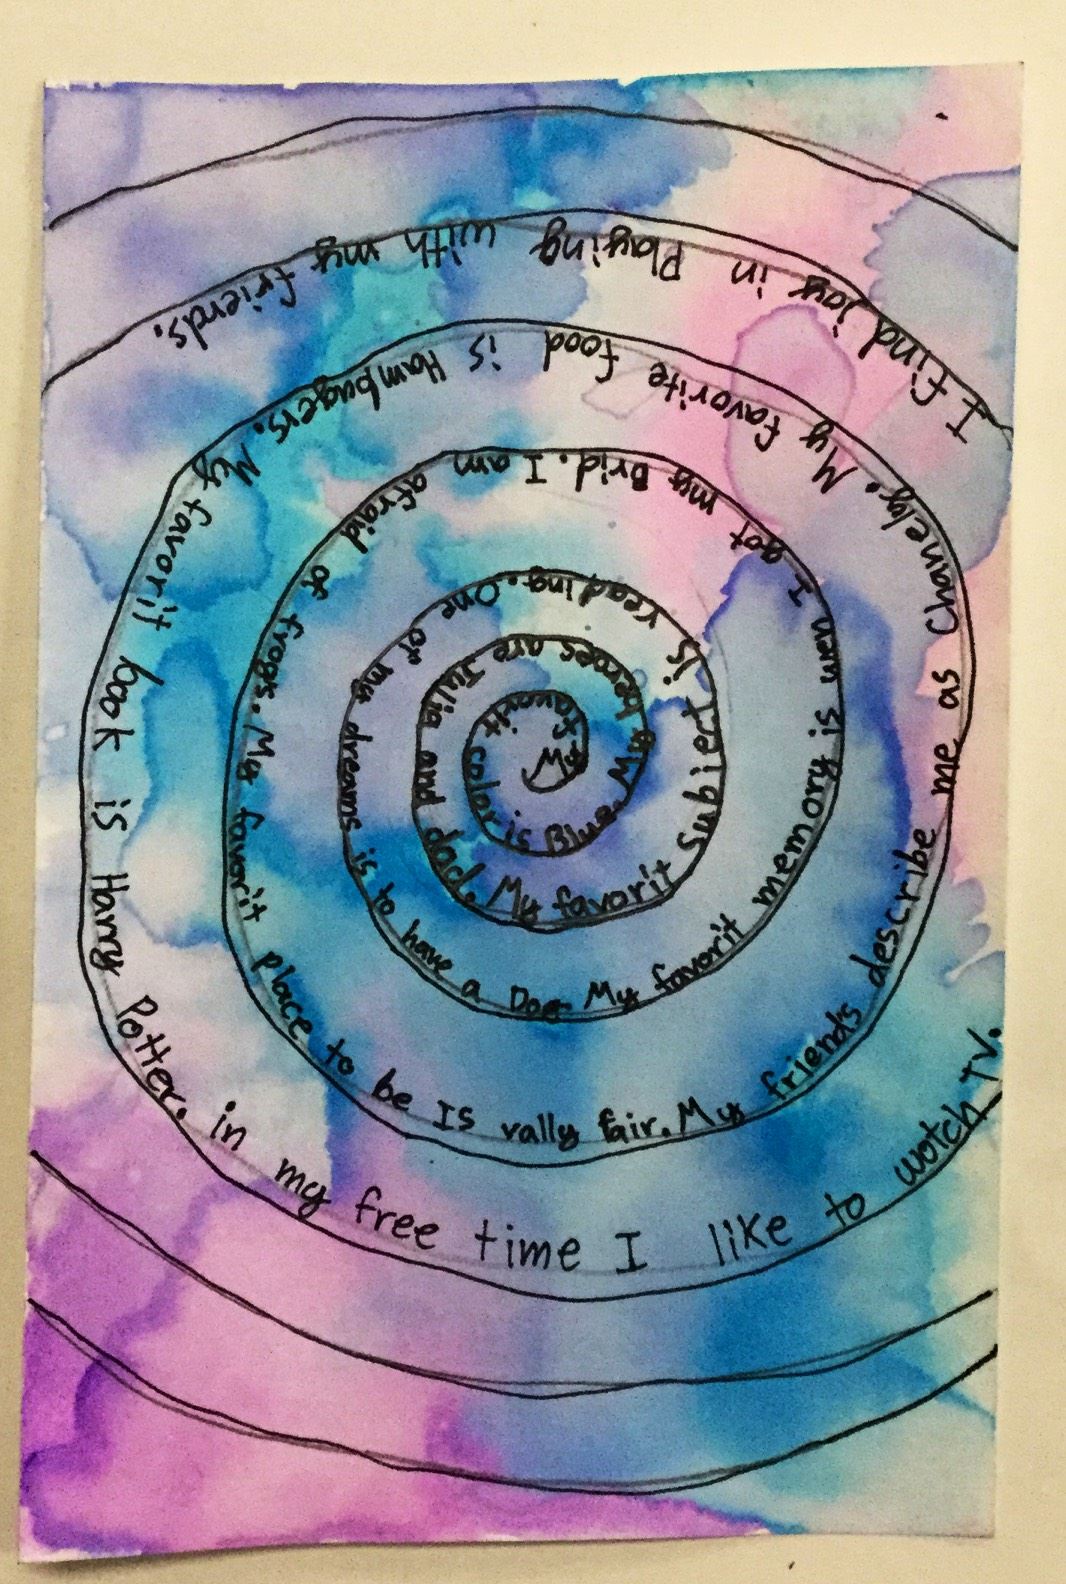 My favorit color is Blue.
My heroes are Julia and dad.
My favorit subject Is reading.
One of my dreams is to have a Dog.
My favorit memory is I got my Brid.
I am afraid of frogs.
My favorit place to be IS vally fair.
My friends describe me as Chanely.
My favorite food is Hambugers.
My favorit book is Harry Potter.
in my free time I like to wotch TV.
I find joy in Playing with my friends.